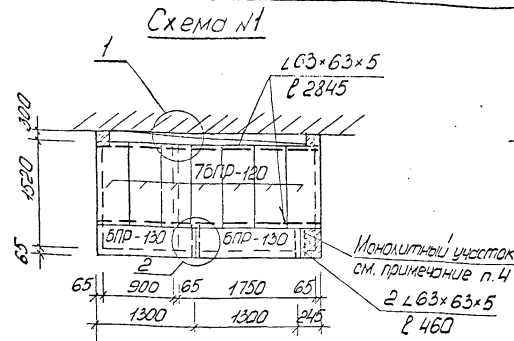 Схема №1
1
∟63×63×5
ℓ 2845
200
1520
65
76ПР-120
5ПР-130
5ПР-130
Монолитный участок
см. примечание п.4
2
2∟63×63×5
ℓ 460
65
900
65
1750
65
1300
1300
245